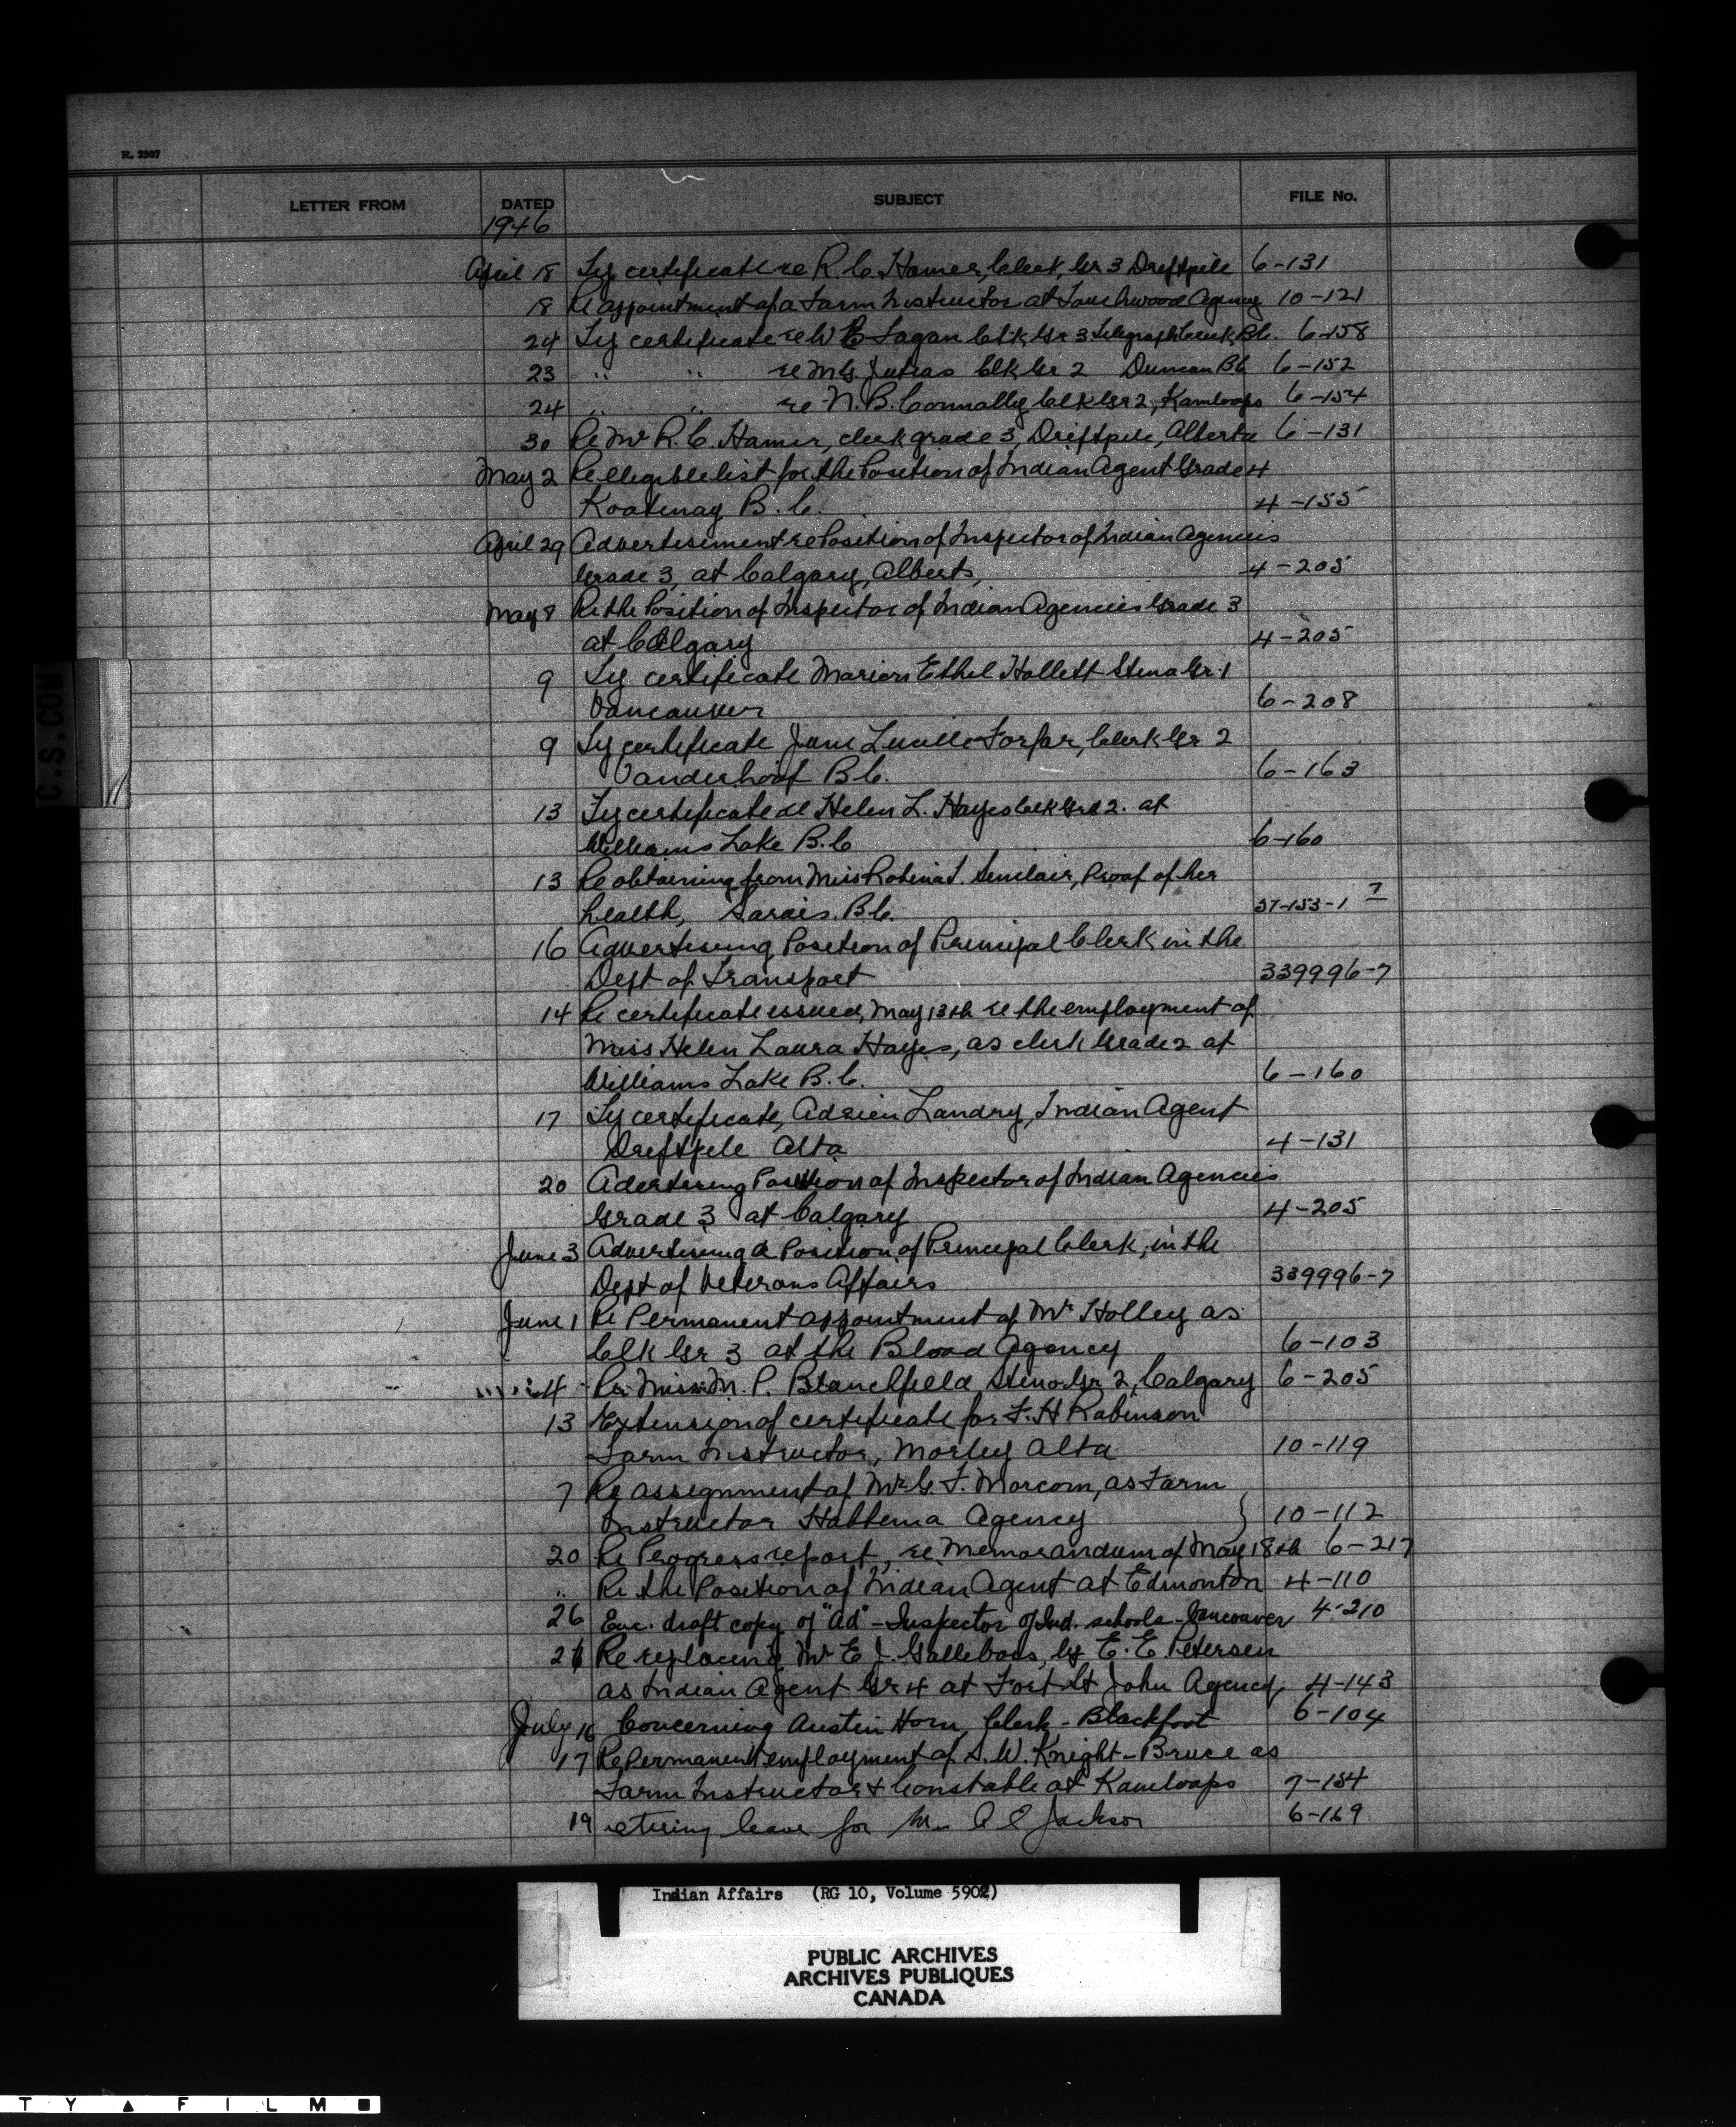 R. 2307
LETTER FROM DATED SUBJECT FILE No.
1946
April 18 Ty certificate re R. C. Hamer, Clerk, Gr 3 Driftpile 6-131
18 Re appointment of a Farm Instructor at Touchwood Agency 10-121
24 Ty certificate re W E Fagan Clk Gr 3 Telegraph Creek, B.C. 6-158
23 " " re M. G. Jutras Clk Gr 2 Duncan BC 6-152
24 " " re N. B. Connally Clk Gr 2, Kamloops 6-154
30 Re Mr R. C. Hamer, clerk grade 3, Driftpile, Alberta 6-131
May 2 Re elegible list for the Position of Indian Agent Grade 4
Kootenay B.C. 4-155
April 29 Advertisement re Position of Inspector of Indian Agencies
Grade 3, at Calgary, Alberta, 4-205
May 8 Re the Position of Inspector of Indian Agencies Grade 3
at Calgary 4-205
9 Ty certificate Marion Ethel Hallett Steno Gr. 1
Vancouver 6-208
9 Ty certificate June Lucille Forfar, Clerk Gr 2
Vanderhoof B.C. 6-163
13 Ty certificate re Helen L. Hayes Clk Grd 2. at
Williams Lake B.C 6-160
13 Re obtaining from Miss Robina J. Sinclair, Proof of her
health, Sardis. B.C. 37-153-1 7
16 Advertising Position of Principal Clerk in the
Dept of Transport 339996-7
14 Re certificate issued, May 13th re the employment of
Miss Helen Laura Hayes, as clerk Grade 2 at
Williams Lake B.C. 6-160
17 Ty certificate, Adrien Landry, Indian Agent
Driftpile Alta 4-131
20 Adertising Position of Inspector of Indian Agencies
Grade 3 at Calgary 4-205
June 3 Advertising a Position of Principal Clerk, in the
Dept of Veterans Affairs 339996-7
June 1 Re Permanent appointment of Mr Holley as
Clk Gr 3 at the Blood Agency 6-103
4 Re Miss M. P. Blanchfield Steno Gr 2, Calgary 6-205
13 Extension of certificate for F. H Robinson
Farm Instructor, Morley Alta 10-119
7 Re assignment of Mr G. F. Morcom, as Farm
Instructor Hobbema Agency } 10-112
20 Re Progress report, re Memorandum of May 18th 6-217
" Re the Position of Indian Agent at Edmonton 4-110
26 Enc. draft copy of "Ad" - Inspector of Ind. schools - Vancouver 4-210
26 Re replacing Mr E J. Galleboes, by E. E. Petersen
as Indian Agent Gr 4 at Fort St John Agency 4-143
July 16 Concerning Austin Horn, Clerk - Blackfoot 6-104
17 Re Permanent employment of S. W. Knight-Bruce as
Farm Instructor & Constable at Kamloops 7-154
19 retiring leave for Mr A E Jackson 6-169
C.S.COM
Indian Affairs (RG 10, Volume 5902)
PUBLIC ARCHIVES
ARCHIVES PUBLIQUES
CANADA
TY ▲ FILM ■